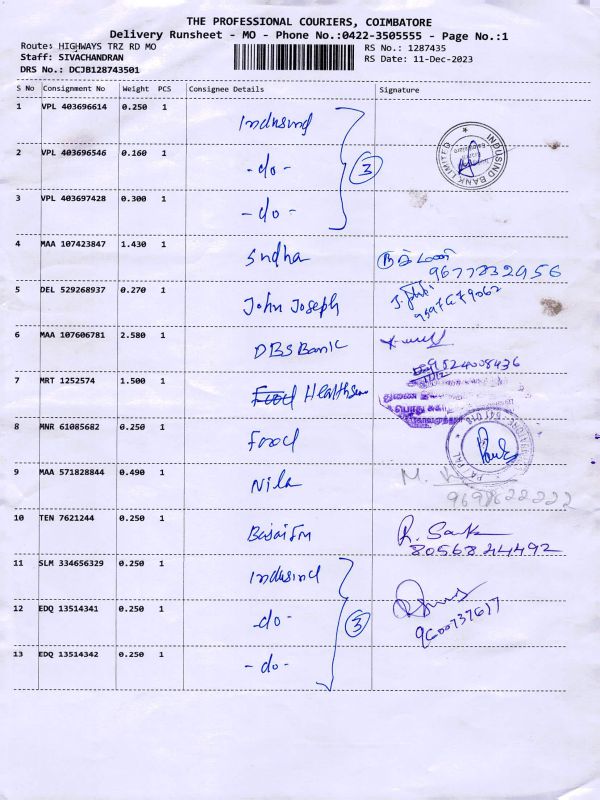 THE PROFESSIONAL COURIERS, COIMBATORE
Delivery Runsheet - MO - Phone No.:0422-3505555 - Page No.:1
Route: HIGHWAYS TRZ RD MO RS No.: 1287435
Staff: SIVACHANDRAN RS Date: 11-Dec-2023
DRS No.: DCJB128743501
S No Consignment No Weight PCS Consignee Details Signature
1 VPL 403696614 0.250 1 Indusind
INDUSIND BANK LIMITED
2 VPL 403696546 0.160 1 -do- 3
3 VPL 403697428 0.300 1 -do-
4 MAA 107423847 1.430 1 Sudha
9677232956
5 DEL 529268937 0.270 1 John Joseph
9597679062
6 MAA 107606781 2.580 1 DBS Bank
9524008436
7 MRT 1252574 1.500 1 Food Health
8 MNR 61085682 0.250 1 Food
9 MAA 571828844 0.490 1 Nila
9698822222
10 TEN 7621244 0.250 1 Bajaj Fin
8056824492
11 SLM 334656329 0.250 1 Indusind
12 EDQ 13514341 0.250 1 -do- 3
9600737617
13 EDQ 13514342 0.250 1 -do-